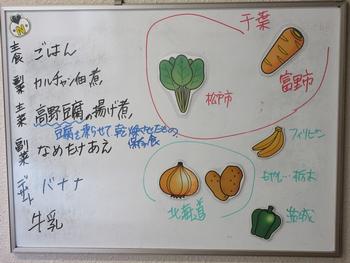 主食 ごはん
副菜 カルチャン佃煮
主菜 高野豆腐の揚げ煮
豆腐を凍らせて乾燥させたもの
保存食
副菜 なめたけあえ
デザート バナナ
牛乳
千葉
松戸市
富里市
フィリピン
もやし…栃木
北海道
茨城